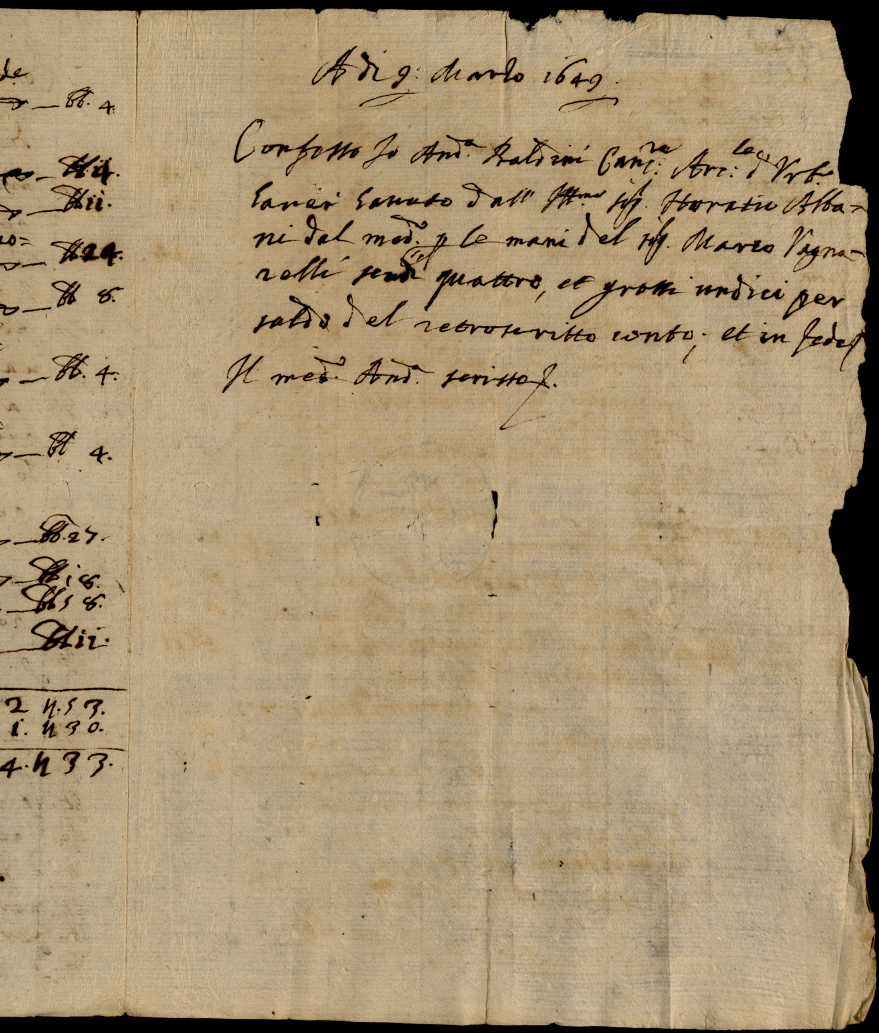 de
bb. 4.
bb ii.
bb ii.
no=
bb 24.
bb 8.
bb. 4.
bb 4.
bb. 27.
bb i 8.
bb 5 8.
bb ii.
2 4.53.
1. 4 30.
4. 4 33.
A di 9: Marzo 1649.
Confesso Io And.a Baldini Canc:re Arc:le d Urb.o
haver havuto dall' Ill.mo sig. Horatio Alba=
ni dal med.o p le mani del sig. Marco Vagna=
relli scudi quattro, et grossi undici per
saldo del retroscritto conto; et in fede
Il med.o And.a scrisse.